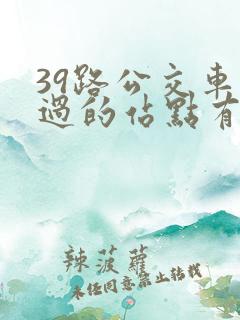 39路公交車
過的佔點有
辣菠蘿
未经同意禁止转载